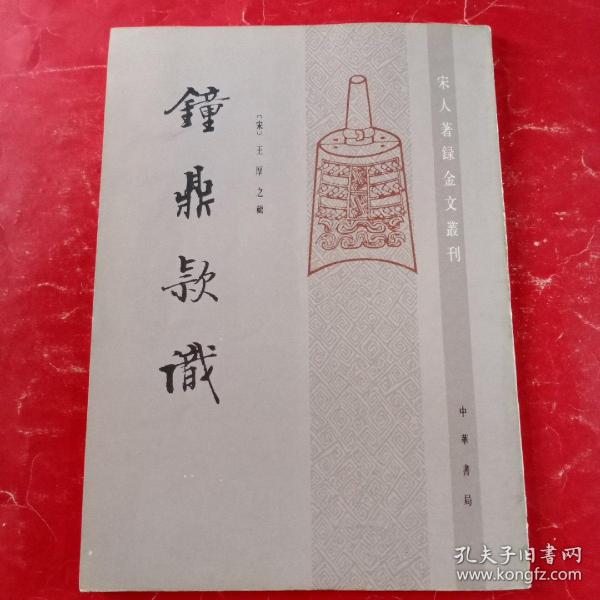 宋人著録金文叢刊
〔宋〕王厚之輯
鐘鼎款識
中華書局
孔夫子旧书网
www.kongfz.com